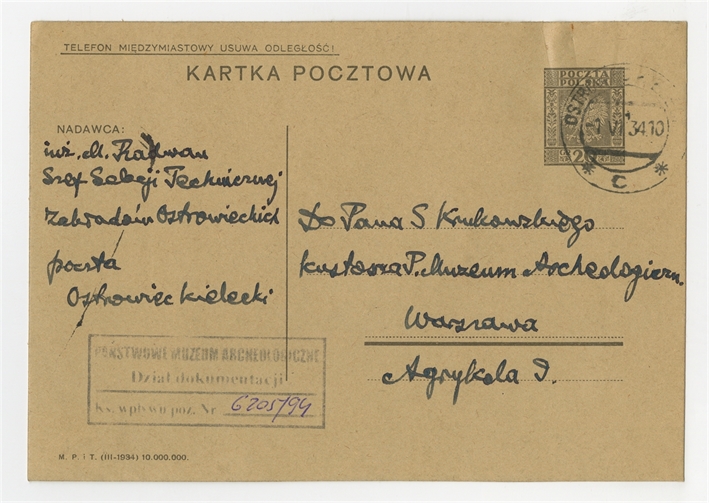 TELEFON MIĘDZYMIASTOWY USUWA ODLEGŁOŚĆ!
KARTKA POCZTOWA
POCZTA
POLSKA
-7 VI 34.10
C
NADAWCA:
inż. M. Radwan
Szef Sekcji Technicznej
Zakładów Ostrowieckich
poczta
Ostrowiec Kielecki
Do Pana S Krukowskiego
Kustosza P. Muzeum Archeologiczn.
Warszawa
Agrykola I.
PAŃSTWOWE MUZEUM ARCHEOLOGICZNE
Dział dokumentacji
Ks. wpływu poz. Nr 6205/94
M. P. i T. (III-1934) 10.000.000.